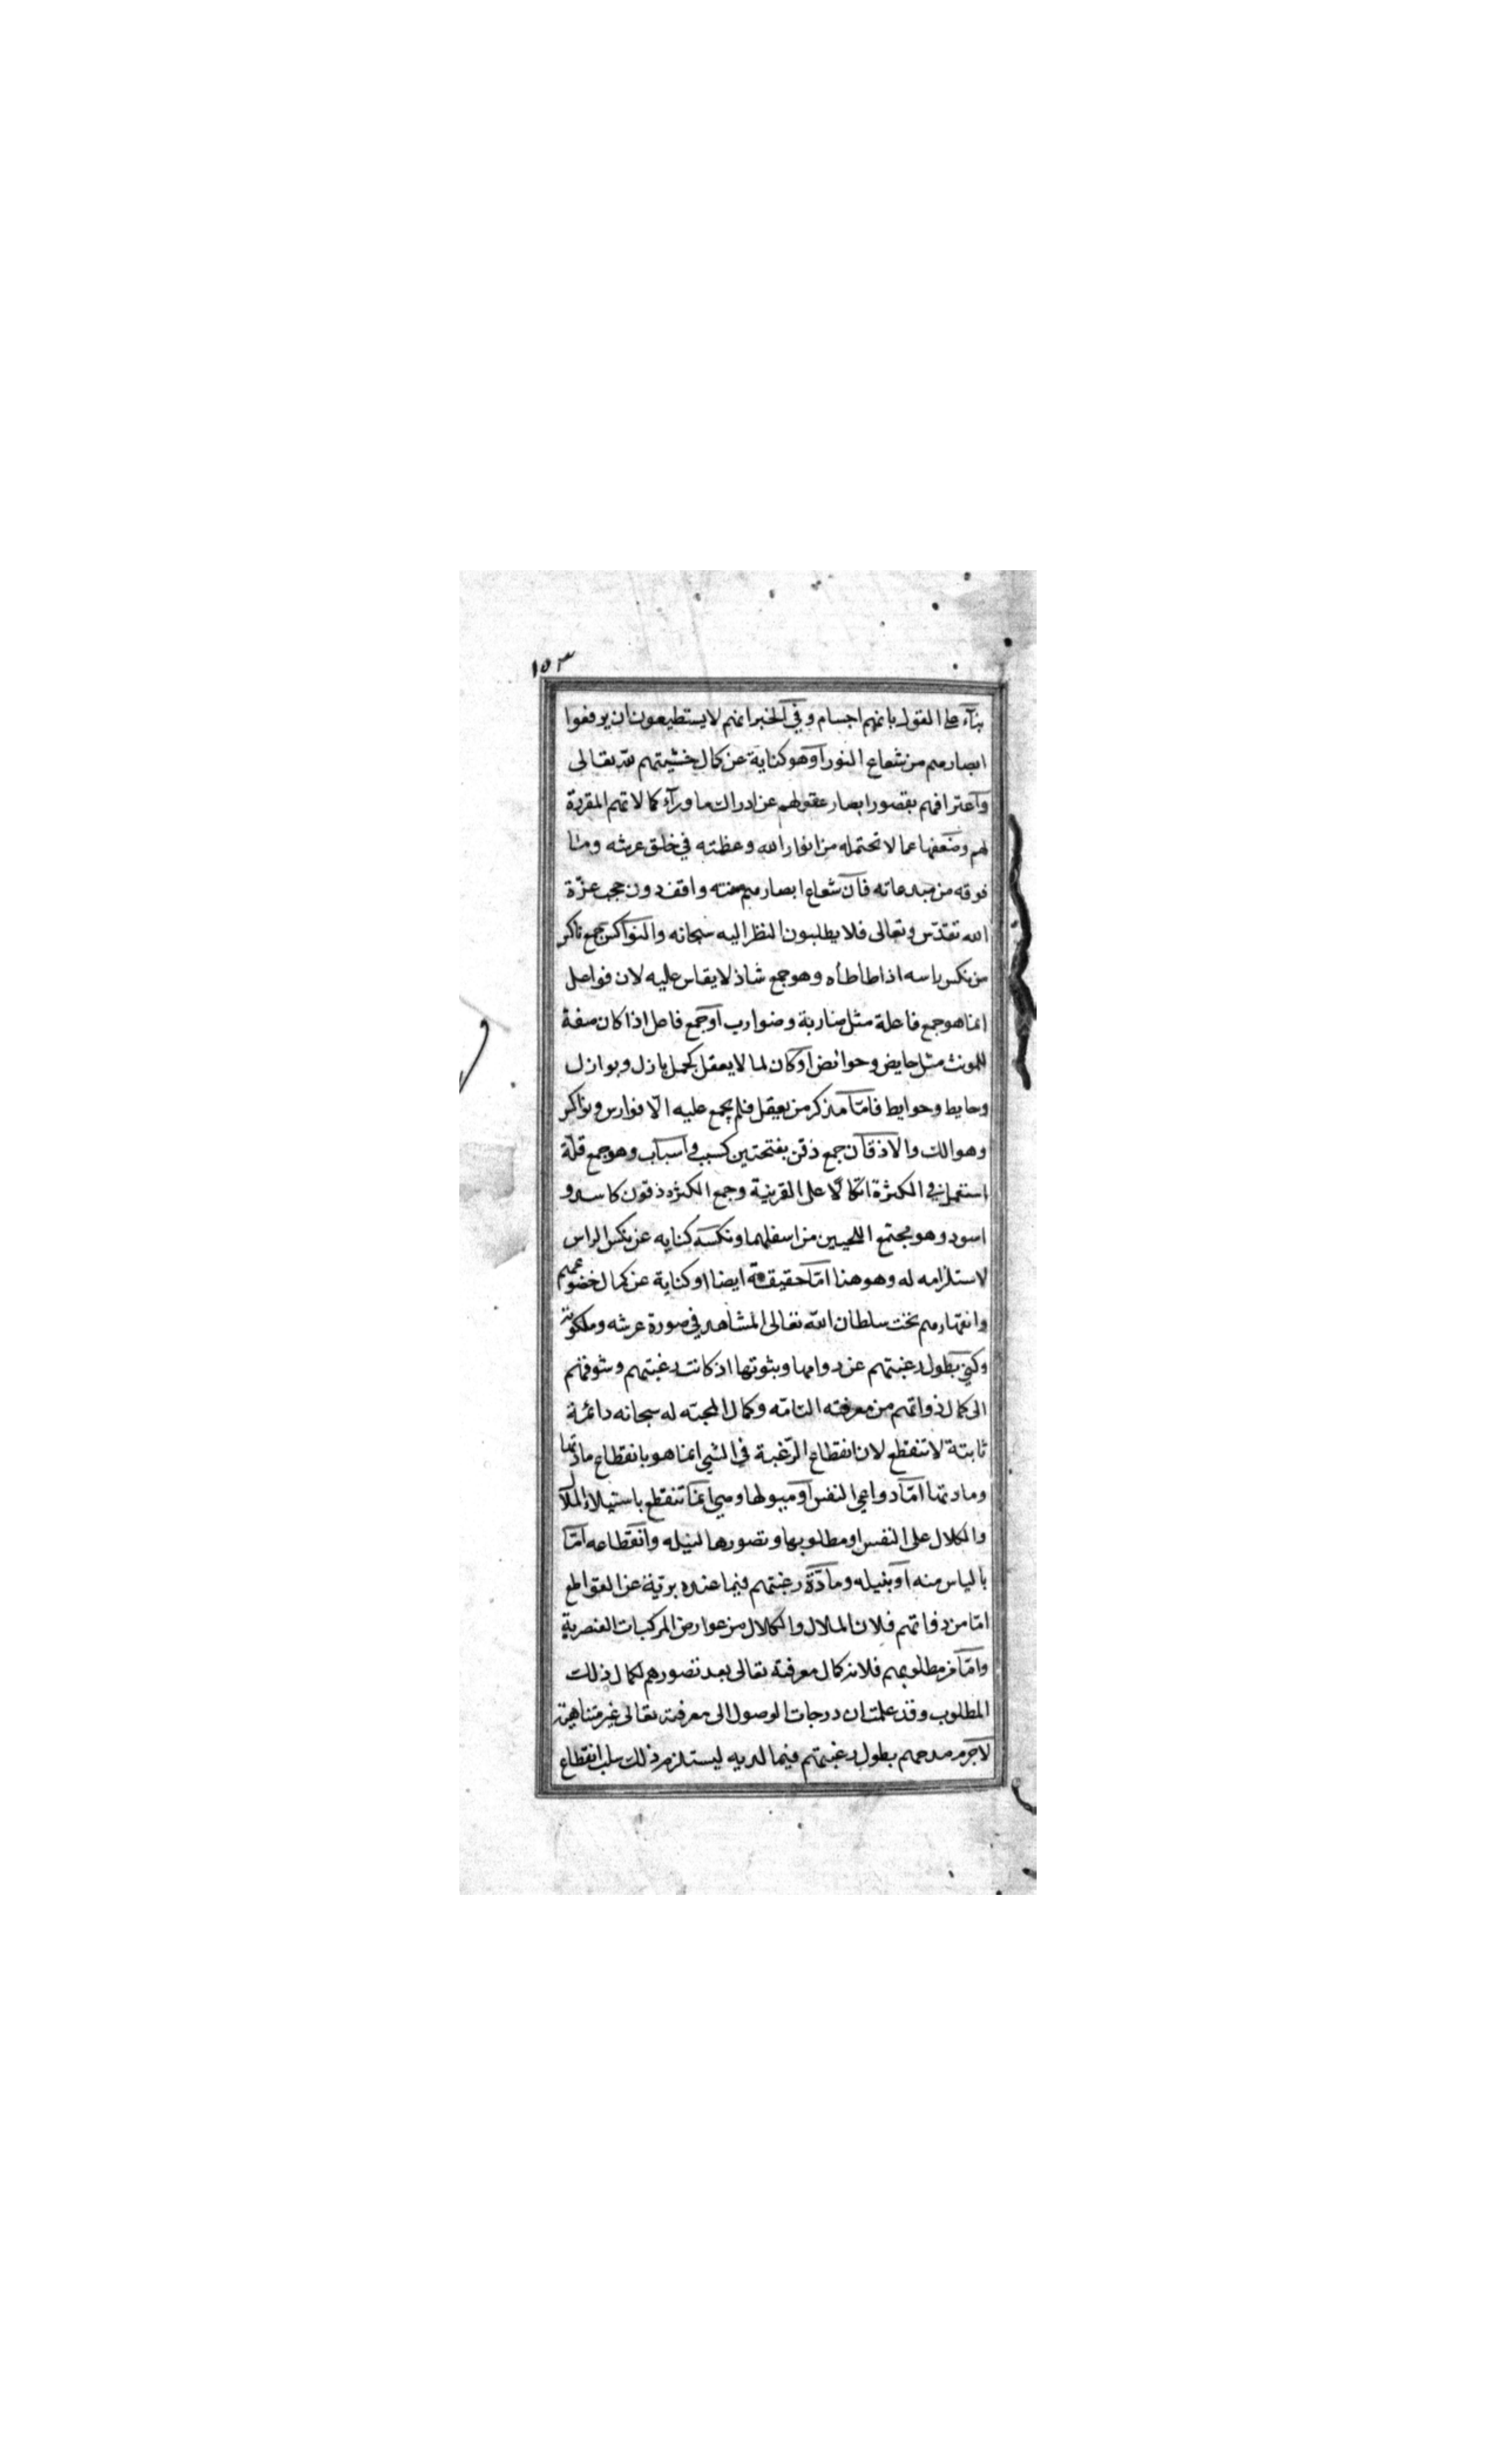 ١٥٣
بنآء على القول بانهم اجسام وفي الخبر انهم لا يستطيعون ان يرفعوا
ابصارهم من شعاع النور او هو كناية عن كمال خشيتهم لله تعالى
واعترافهم بقصور ابصار عقولهم عن ادراك ما ورآء كمالاتهم المقررة
لهم وضعفها عما لا تحتمله من انوار الله وعظمته في خلق عرشه وما
فوقه من مبدعاته فان شعاع ابصارهم منته واقف دون حجب عزّة
الله تقدّس وتعالى فلا يطلبون النظر اليه سبحانه والنواكس جمع ناكس
من نكس راسه اذا طأطأه وهو جمع شاذ لا يقاس عليه لان فواعل
انما هو جمع فاعلة مثل ضاربة وضوارب او جمع فاعل اذا كان صفة
للمونث مثل حايض وحوائض او كان لما لا يعقل كجمل بازل وبوازل
وحايط وحوايط فامّا مذكر من يعقل فلم يجمع عليه الّا فوارس ونواكس
وهوالك والاذقان جمع ذقن بفتحتين كسبب واسباب وهو جمع قلّة
استعمل في الكثرة اتكالًا على القرينة وجمع الكثرة ذقون كاسد و
اسود وهو مجتمع اللحيين من اسفلهما ونكسه كنايه عن نكس الراس
لاستلزامه له وهو هنا امّا حقيقة ايضا او كناية عن كمال خضوعهم
وانقهارهم تحت سلطان الله تعالى المشاهد في صورة عرشه وملكوته
وكني بطول رغبتهم عن دوامها وثبوتها اذ كانت رغبتهم وشوقهم
الى كمال ذواتهم من معرفته التامّه وكمال المحبته له سبحانه دائمة
ثابتة لا تنقطع لان انقطاع الرّغبة في الشي انما هو بانقطاع مادتها
ومادتها امّا دواعي النفس او ميولها وهي انما تنقطع باستيلاء الملال
والكلال على النفس او مطلوبها وتصورها لنيله وانقطاعه امّا
بالياس منه او بنيله ومادّة رغبتهم فيما عنده بريّة عن القواطع
امّا من ذواتهم فلان الملال والكلال من عوارض المركبات العنصرية
وامّا من مطلوبهم فلانه كمال معرفته تعالى بعد تصورهم لكمال ذلك
المطلوب وقد علمت ان درجات الوصول الى معرفته تعالى غير متناهية
لا جرم مدحهم بطول رغبتهم فيما لديه ليستلزم ذلك سلب انقطاع